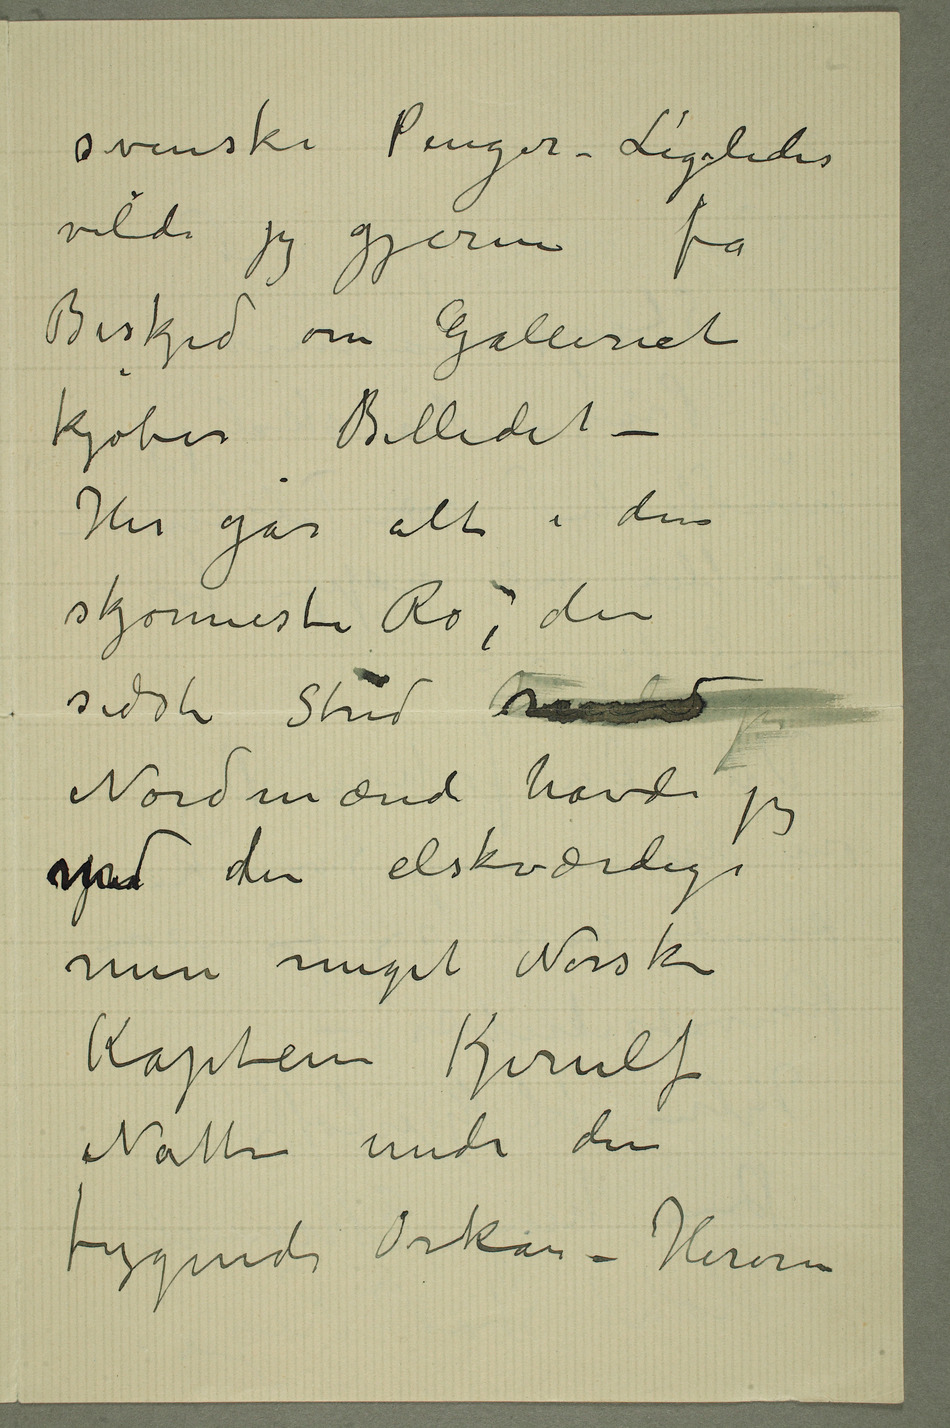 svenske Penger – Ligeledes
vilde jeg gjerne få
Beskjed om Galleriet
kjøber Billedet –
Her går alt i den
skjønneste Ro; den
sidste Strid
Nordmænd havde jeg
med den elskværdige
men meget Norske
Kaptein Kjerulf
Natten under den
frygende Orkan – Herom